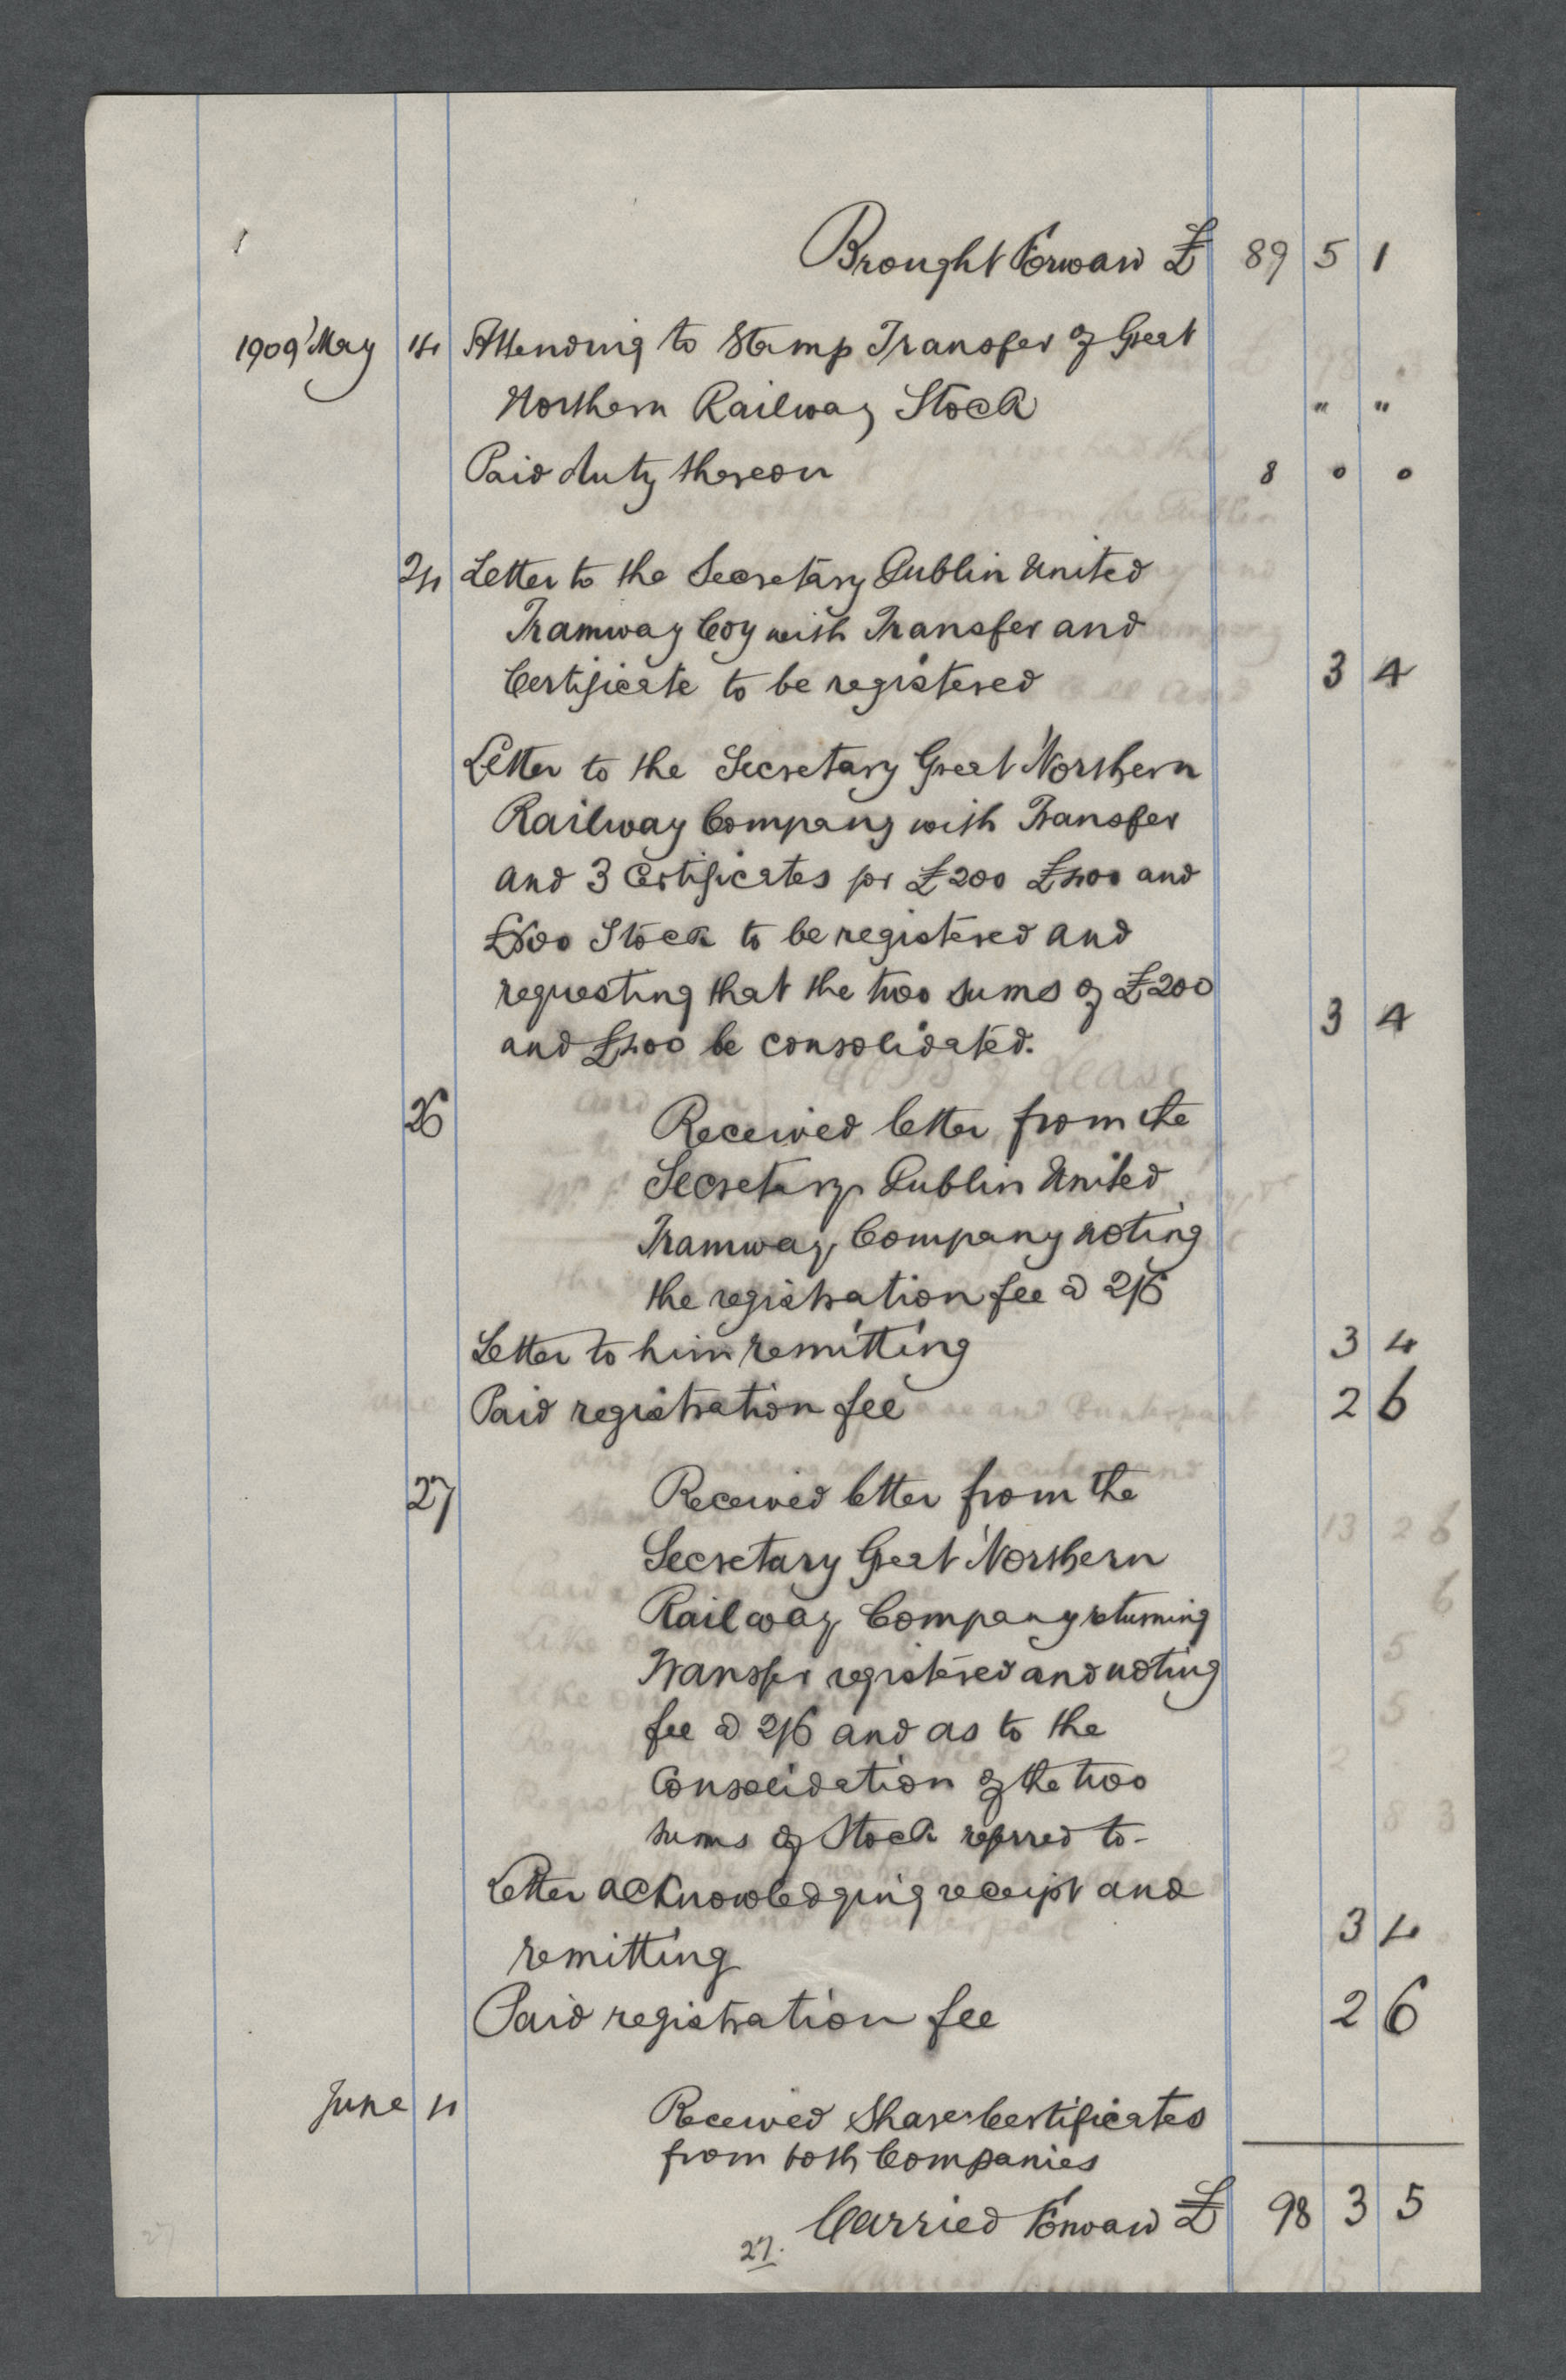 Brought Forward £ 89 5 1
1909 May 14 Attending to Stamp Transfer of Great
Northern Railway Stock " "
Paid duty thereon 8 0 0
24 Letter to the Secretary Dublin United
Tramway Coy with Transfer and
Certificate to be registered 3 4
Letter to the Secretary Great Northern
Railway Company with Transfer
and 3 Certificates for £200 £400 and
Stock to be registered and
requesting that the two sums of £200
and £400 be consolidated. 3 4
26 Received letter from the
Secretary Dublin United
Tramway Company noting
the registration fee @ 2/6
Letter to him remitting 3 4
Paid registration fee 2 6
27 Received letter from the
Secretary Great Northern
Railway Company returning
Transfer registered and noting
fee @ 2/6 and as to the
Consolidation of the two
sums of Stock referred to-
Letter acknowledging receipt and
remitting 3 4
Paid registration fee 2 6
June Received Share Certificates
from both Companies
Carried Forward £ 98 3 5
27.